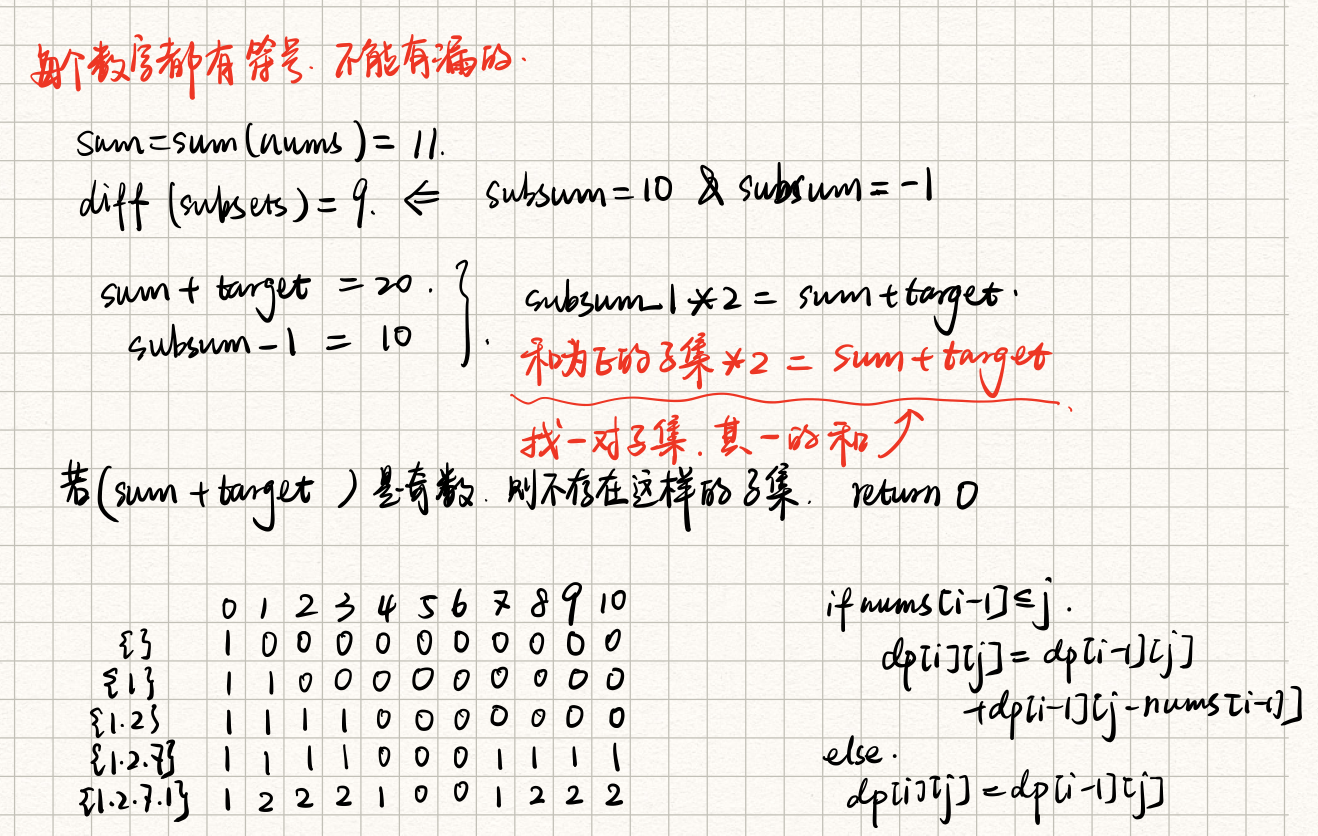 每个数字都有符号. 不能有漏的.
sum=sum(nums)= 11.
diff (subsets)= 9. ⇐ subsum=10 & subsum=-1
sum + target = 20. } subsum_1*2 = sum+target.
subsum-1 = 10
和为正的子集*2 = sum+target
找一对子集. 其一的和↗
若(sum + target ) 是奇数. 则不存在这样的子集. return 0
0 1 2 3 4 5 6 7 8 9 10
{} 1 0 0 0 0 0 0 0 0 0 0
{1} 1 1 0 0 0 0 0 0 0 0 0
{1.2} 1 1 1 1 0 0 0 0 0 0 0
{1.2.7} 1 1 1 1 0 0 0 1 1 1 1
{1.2.7.1} 1 2 2 2 1 0 0 1 2 2 2
if nums[i-1]≤j.
dp[i][j]= dp[i-1][j]
+dp[i-1][j-nums[i-1]]
else.
dp[i][j]=dp[i-1][j]